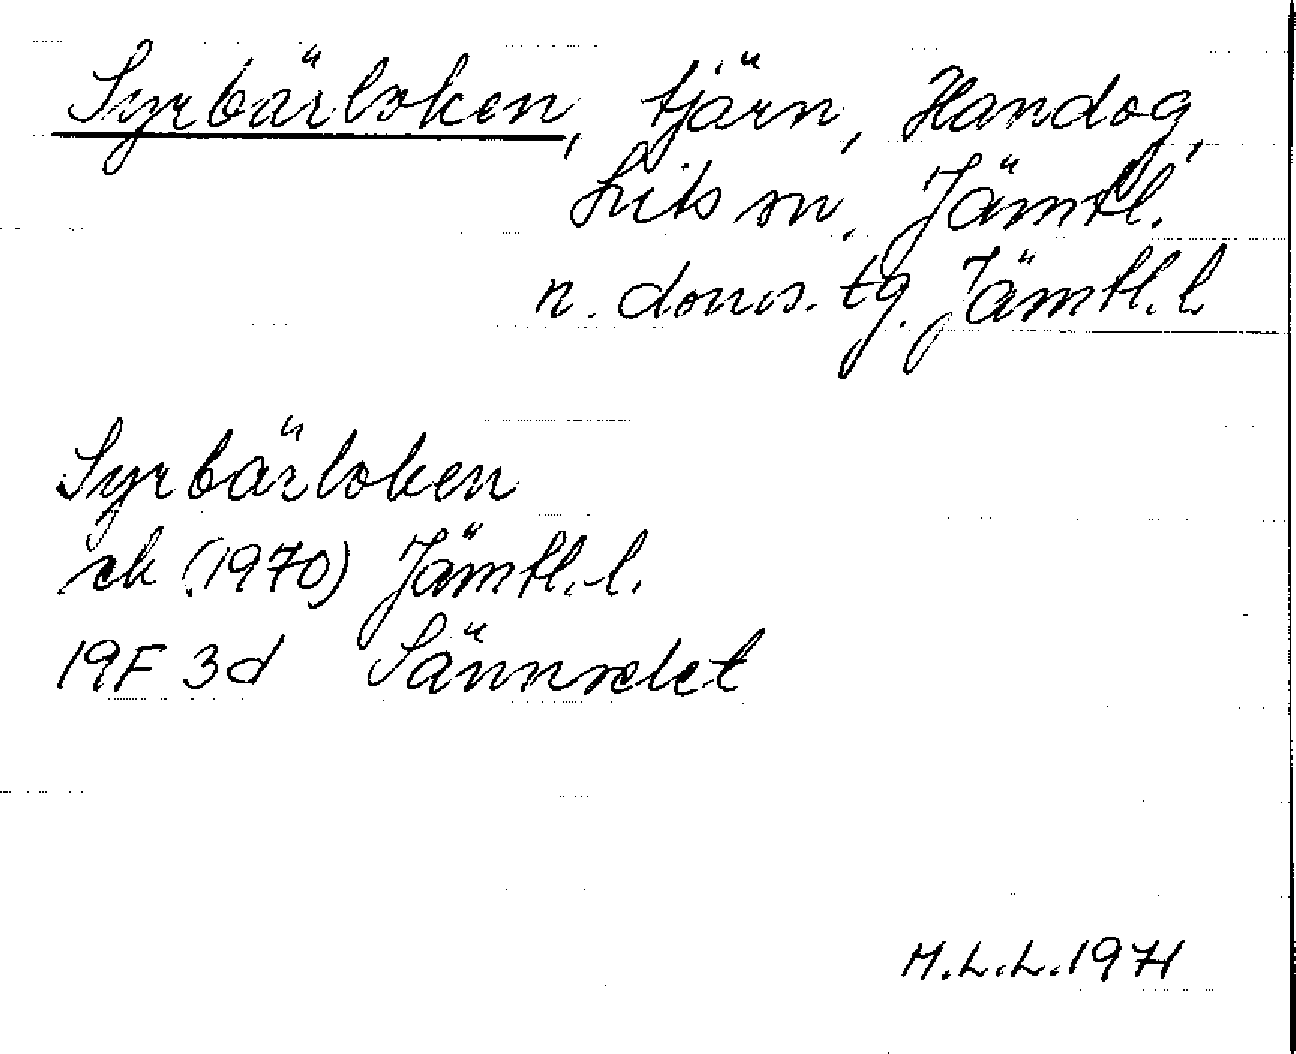 Syrbärloken, tjärn, Handog,
Lits sn, Jämtl.
n. doms. tg. Jämtl. l.
Syrbärloken
ek (1970) Jämtl. l.
19F 3d Sännselet
M.L.L. 1971